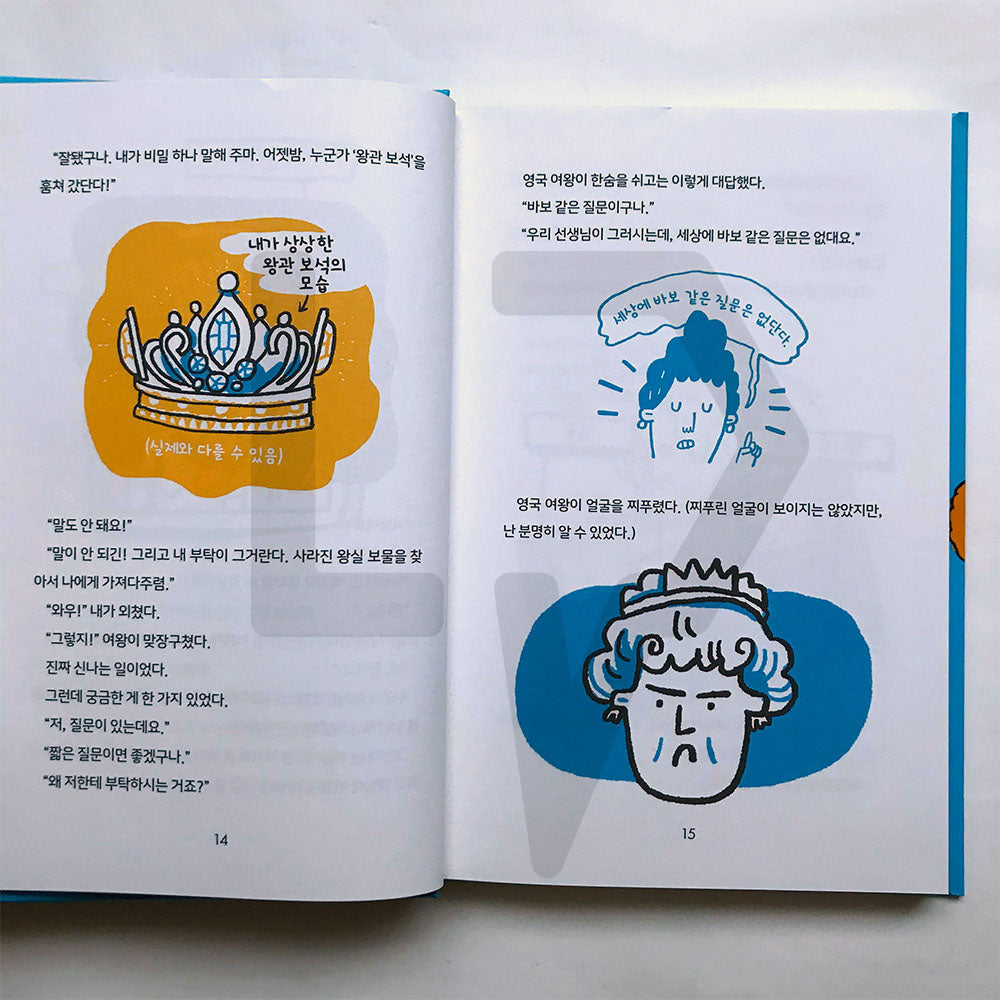 “잘됐구나. 내가 비밀 하나 말해 주마. 어젯밤, 누군가 ‘왕관 보석’을
훔쳐 갔단다!”
내가 상상한
왕관 보석의
모습
(실제와 다를 수 있음)
“말도 안 돼요!”
“말이 안 되긴! 그리고 내 부탁이 그거란다. 사라진 왕실 보물을 찾
아서 나에게 가져다주렴.”
“와우!” 내가 외쳤다.
“그렇지!” 여왕이 맞장구쳤다.
진짜 신나는 일이었다.
그런데 궁금한 게 한 가지 있었다.
“저, 질문이 있는데요.”
“짧은 질문이면 좋겠구나.”
“왜 저한테 부탁하시는 거죠?”
14
영국 여왕이 한숨을 쉬고는 이렇게 대답했다.
“바보 같은 질문이구나.”
“우리 선생님이 그러시는데, 세상에 바보 같은 질문은 없대요.”
세상에 바보 같은 질문은 없단다.
영국 여왕이 얼굴을 찌푸렸다. (찌푸린 얼굴이 보이지는 않았지만,
난 분명히 알 수 있었다.)
15